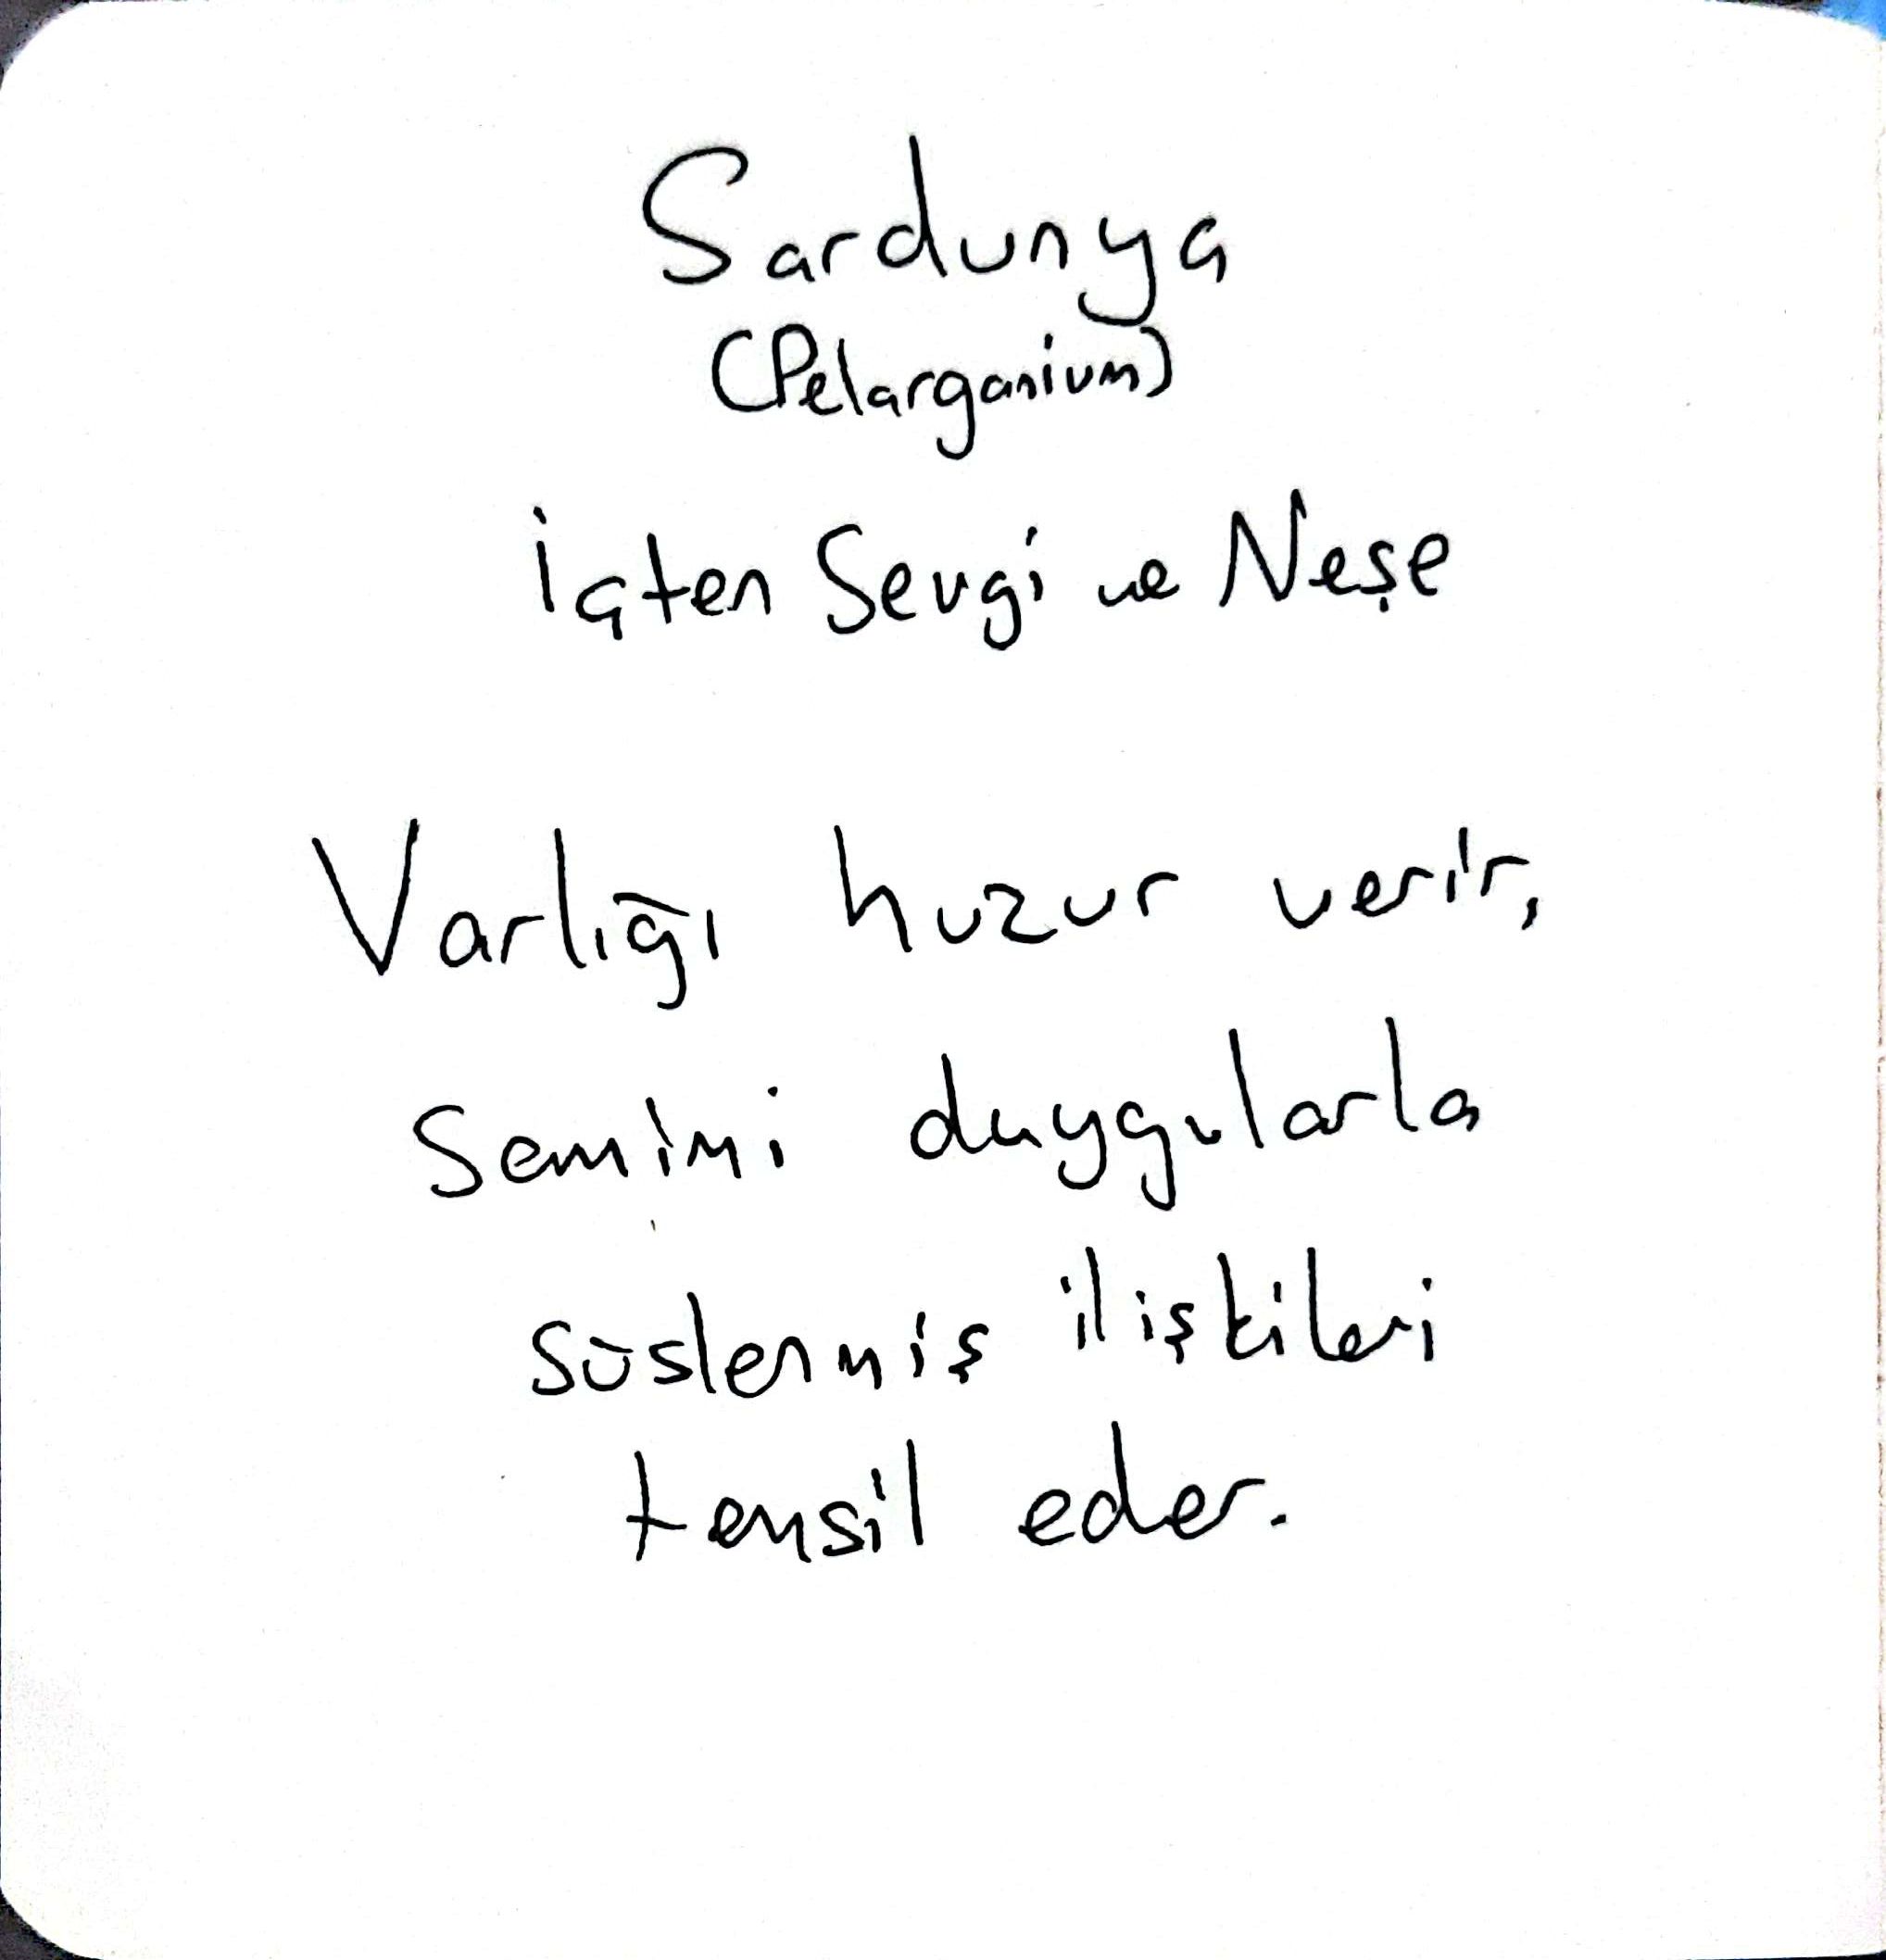 Sardunya
(Pelarganium)
İçten Sevgi ve Neşe
Varlığı huzur verir,
Semimi duygularla
süslenmiş ilişkileri
temsil eder.